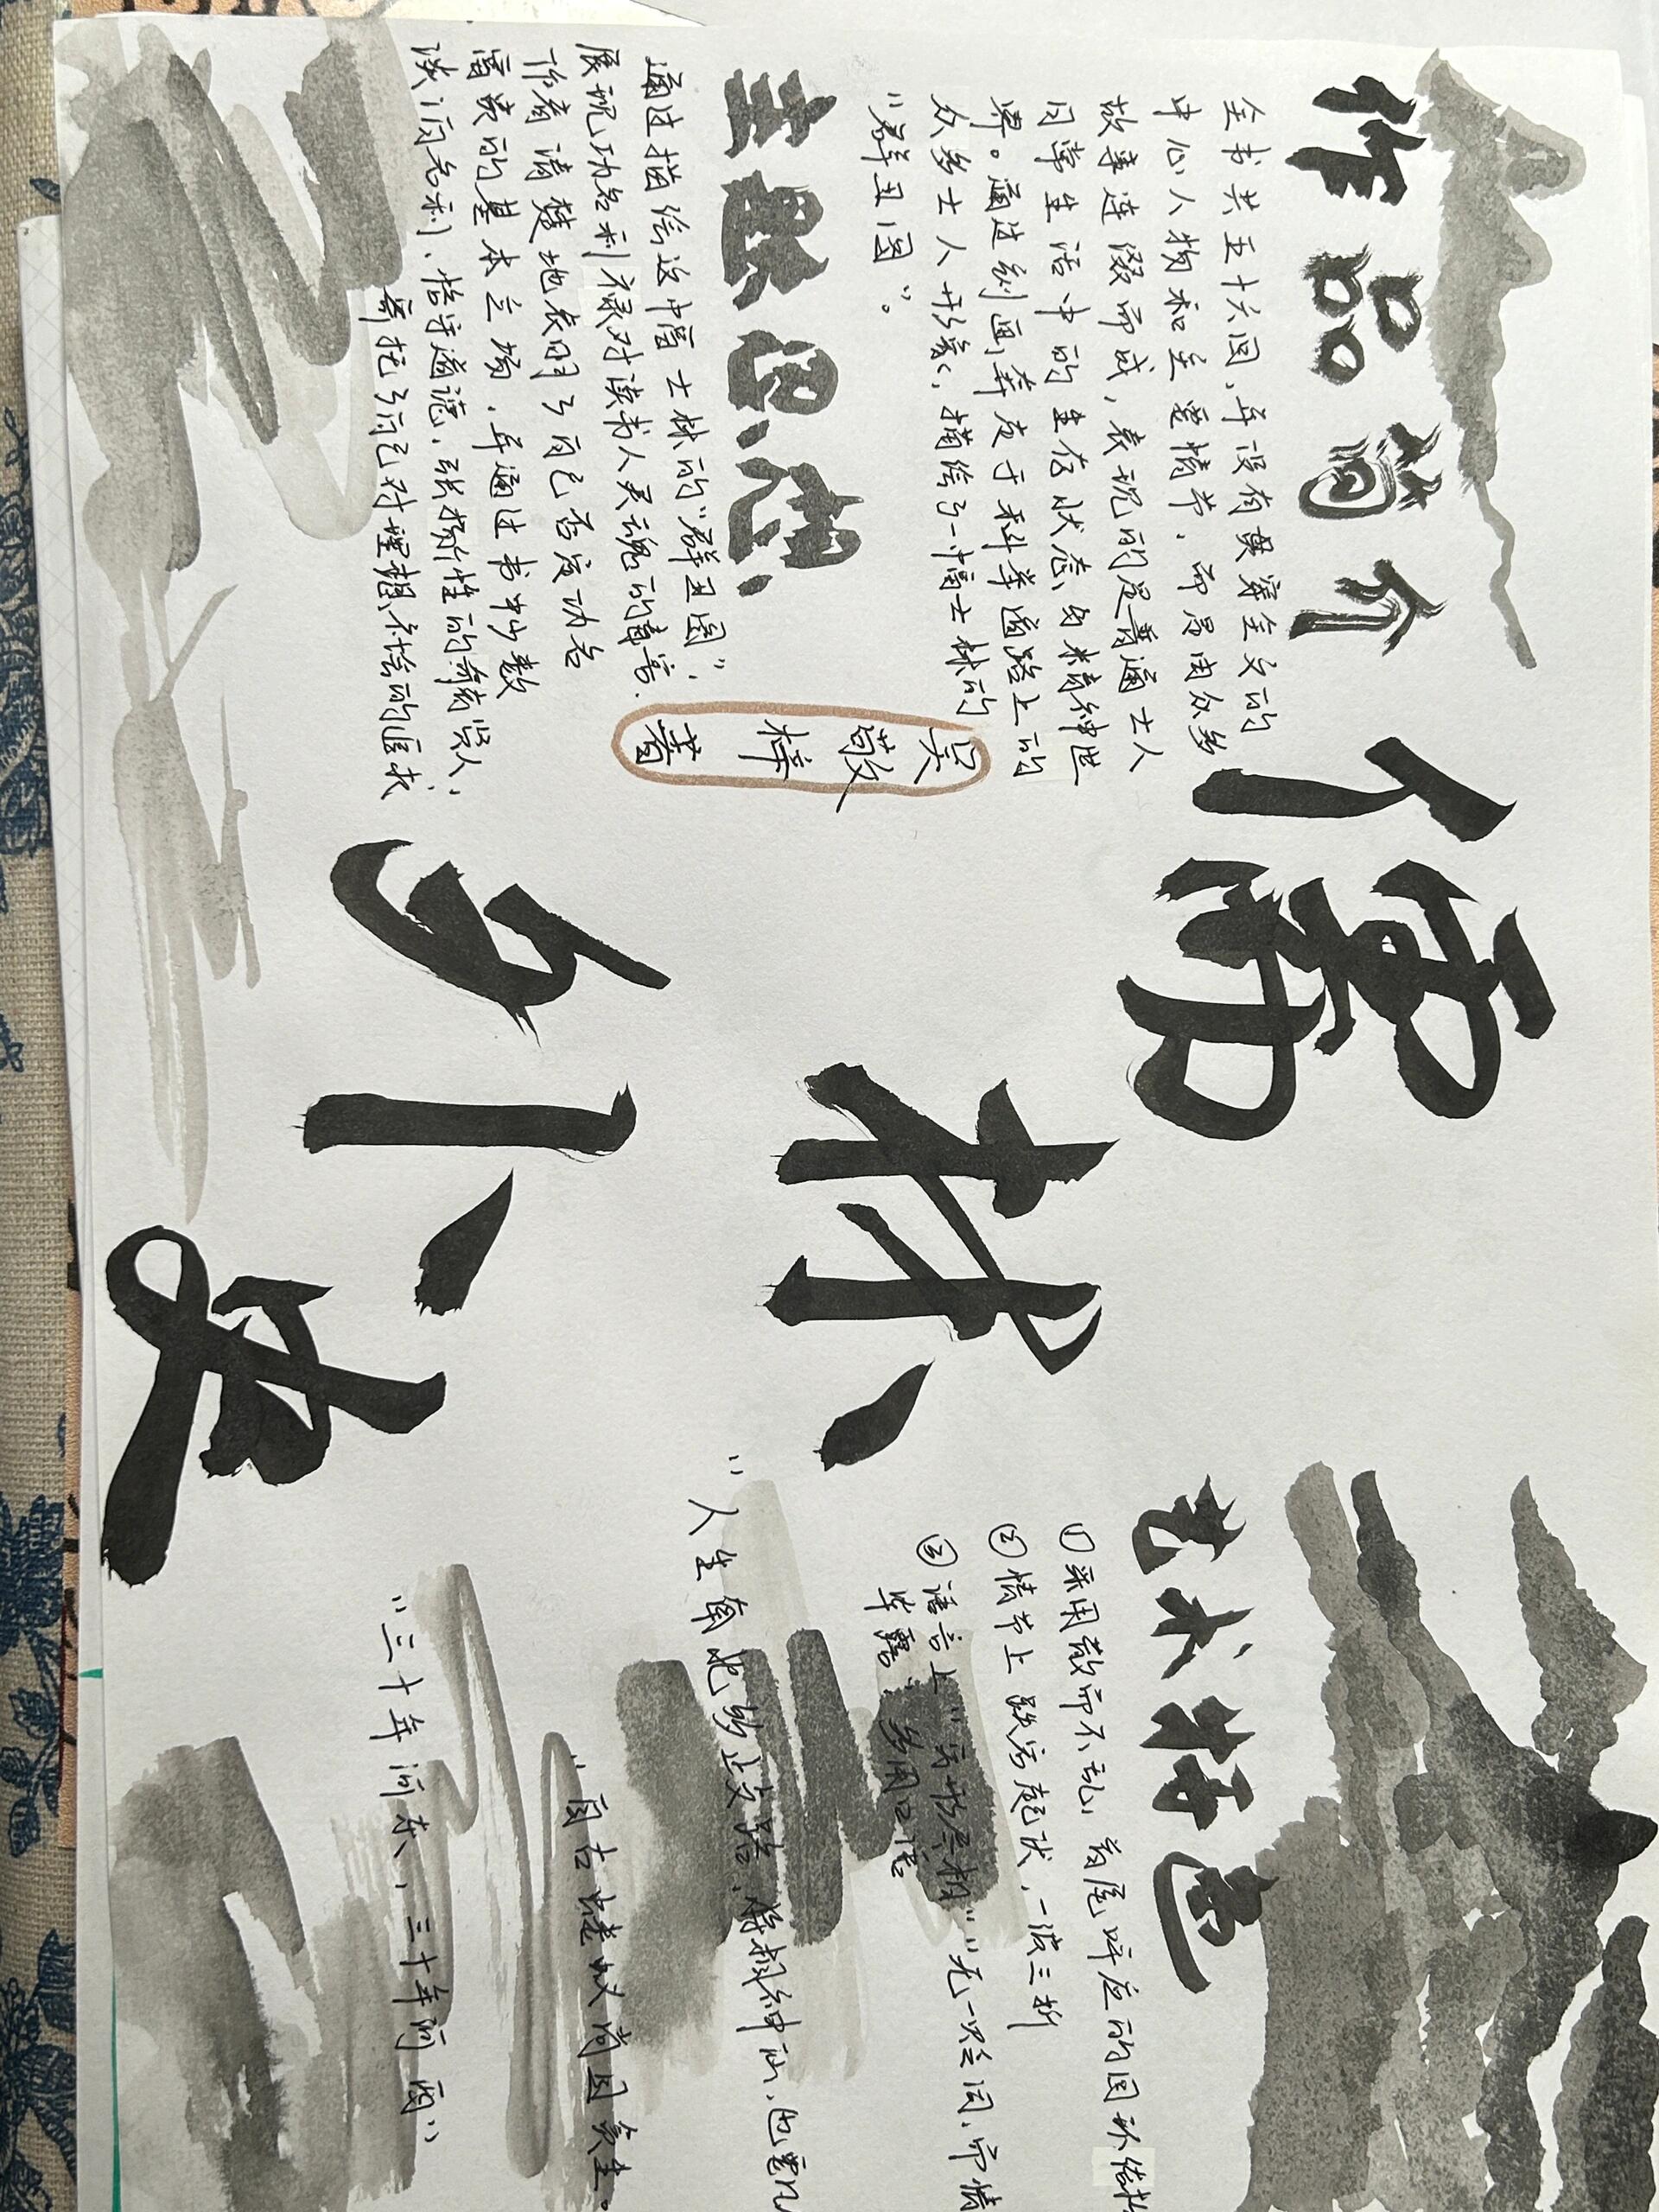 作品简介
全书共五十六回，并没有贯穿全文的
中心人物和主要情节，而是由众多
故事连缀而成，表现的是普通士人
日常生活中的生存状态与精神世
界。通过刻画奔走于科举道路上的
众多士人形象，描绘了一幅士林的
“群丑图”。
主题思想
通过描绘这幅士林的“群丑图”，
展现功名利禄对读书人灵魂的毒害.
作者清楚地表明了自己否定功名
富贵的基本立场，并通过书中少数
淡泊名利、恪守道德、张扬个性的贤人，
寄托了自己对理想人格的追求
吴敬梓著
儒林外史
艺术特色
①采用散而不乱，首尾呼应的圆形结构
②情节上跌宕起伏，一波三折
③语言上“穷形尽相”“无一贬词，而情
毕露”，多用口语
“人生南北多歧路，将相神仙，也要凡
“自古蝼蚁尚且贪生。
“三十年河东，三十年河西”